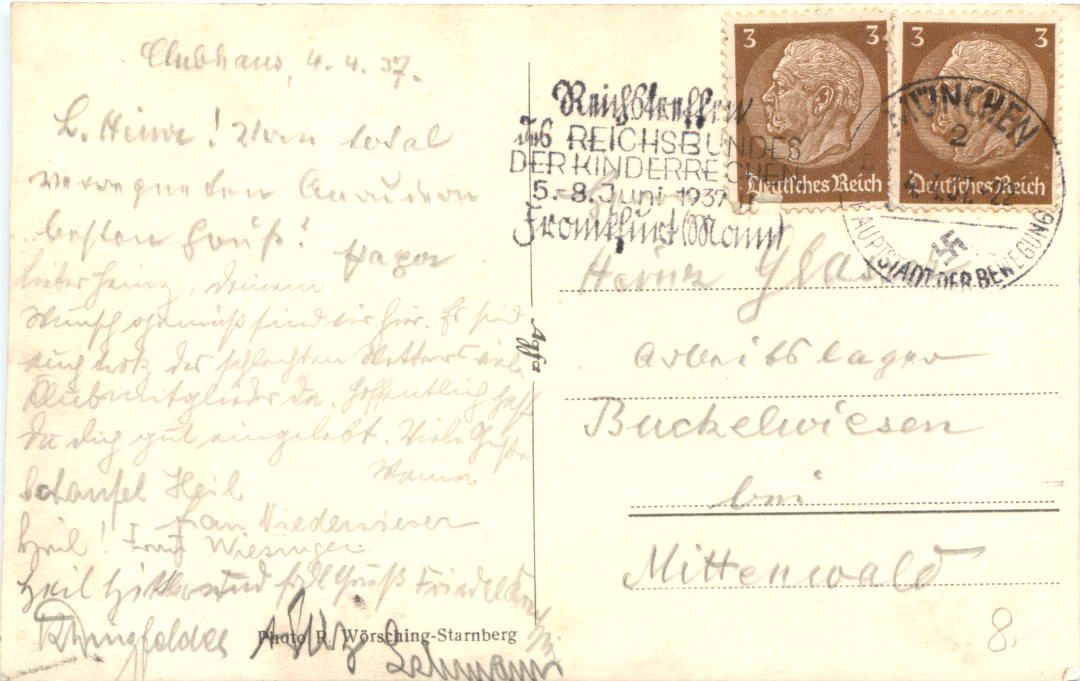 Clubhaus, 4.4.37.
L. Heinz! Vom total
verregneten
besten Gruß!
Lieber Heinz, Deinem
Wunsch gemäß sind wir hier. Es sind
auch trotz des schlechten Wetters viele
Clubmitglieder da. Hoffentlich hast
Du Dich gut eingelebt. Viele Grüße
Heil
Frau Niederwieser
Heil! Frau Wiesinger
Heil Hitler und Gruß
Lehmann
Photo R. Wörsching-Starnberg
Agfa
Reichstreffen
des REICHSBUNDES
DER KINDERREICHEN
5.-8. Juni 1937 in
Frankfurt (Main)
3 3
Deutsches Reich
3
Deutsches Reich
MÜNCHEN
2
HAUPTSTADT DER BEWEGUNG
Heinz
Arbeitslager
Buckelwiesen
bei
Mittenwald
8.